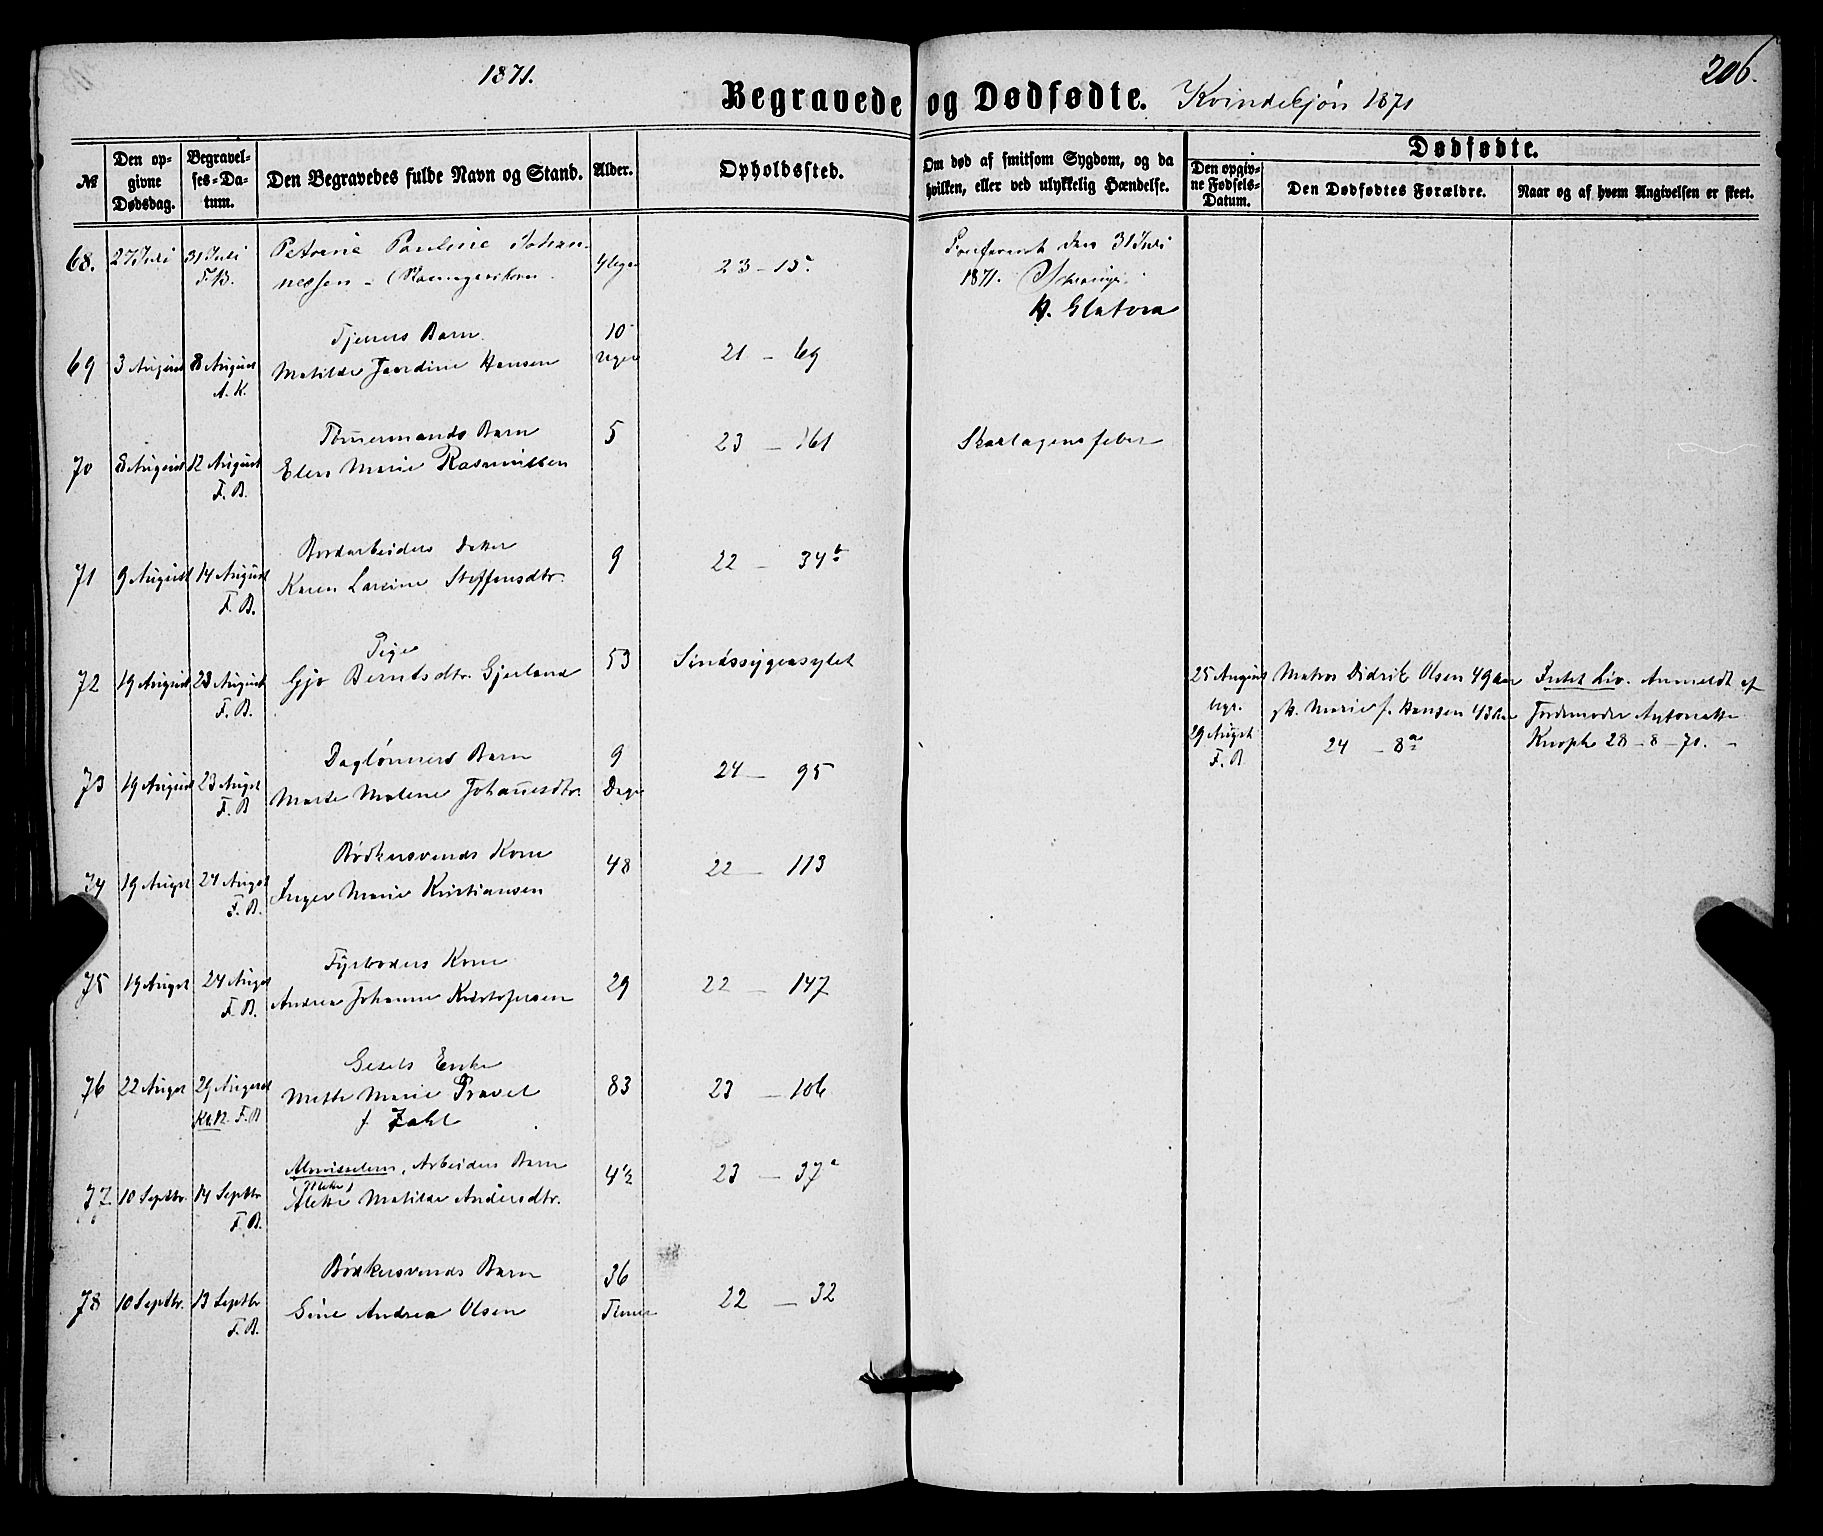 1871.
206.
Begravede og Dødfødte. Kvindekjøn 1871
№
Den opgivne Dødsdag.
Begravelses-Datum.
Den Begravedes fulde Navn og Stand.
Alder.
Opholdssted.
Om død af smitsom Sygdom, og da hvilken, eller ved ulykkelig Hændelse.
Dødfødte.
Den opgivne Fødsels-Datum.
Den Dødfødtes Forældre.
Naar og af hvem Angivelsen er skeet.
68. 27 Juli 31 Juli Petrine Pauline Johan- 4 Uger 23 - 15 den 31 Juli
F.B. nessen - 1871.
Tjeners Barn 10
69 3 August 8 August Matilde Hansen Uger 21 - 69
A.K.
Tømermands Barn 5 23 - 161 Skarlagensfeber
70 8 August 12 August Elen Marie Rasmussen
F.B.
Bordarbeiders Datter 9 22 - 34b
71 9 August 14 August Karen Lavine Steffensdtr.
F.B.
Pige 53 Sindssygeasylet
72 19 August 23 August Gjø Berntsdtr. Gjerland
F.B.
25 August Matros Didrik Olsen 49 Aar Intet Liv. Anmeldt af
begr. Marie f. Hansen 43 Aar Jordemoder Antonette
29 Augst 24 - 8 Knoph 28-8-70. -
F.B
Daglønners Barn 9 24 - 95
73 19 August 23 Augst Marte Malene Johannesdtr. Dage
F.B
Bødkersvends Kone 48 22 - 113
74 19 Augst 24 Augst Inger Marie Kristiansen
F.B.
Fyrbøders Kone
75 19 Augst 24 Augst Andrea Johanne Kristofersen 29 22 - 147
F.B.
Gesels Enke
76 22 Augst 29 August Mette Marie Pravel 83 23 - 106
F.B f. Zahl
Arbeiders Barn 4½ 23 - 37a
77. 10 Septbr. 14 Septbr Alette Matilde Andersdtr.
F.B.
Bødkersvends Barn 36
78 10 Septbr. 13 Septbr Sine Andrea Olsen Timer 22 - 32
F.B.